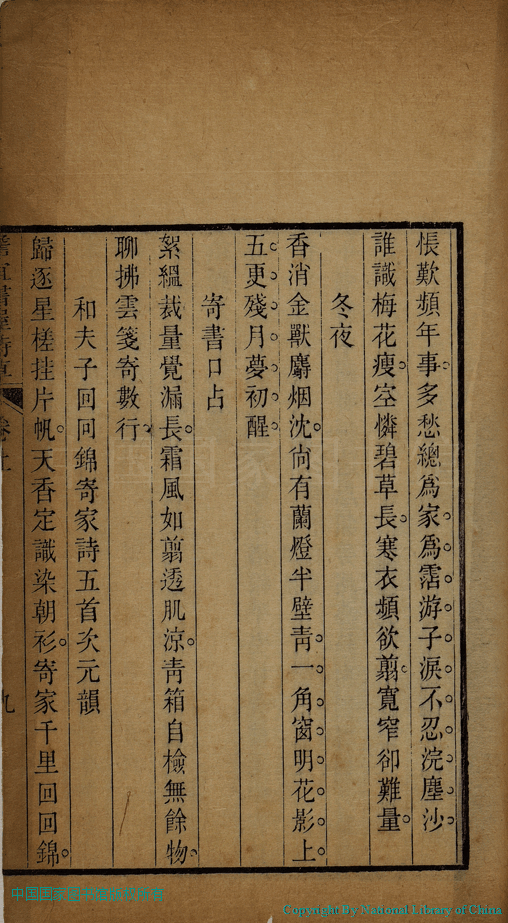 悵歎頻年事多愁總為家為霑游子淚不忍浣塵沙
誰識梅花瘦空憐碧草長寒衣頻欲翦寬窄卻難量
冬夜
香消金獸麝烟沈尙有蘭燈半壁靑一角窗明花影上
五更殘月夢初醒
寄書口占
絮縕裁量覺漏長霜風如翦透肌涼靑箱自檢無餘物
聊拂雲箋寄數行
和夫子回回錦寄家詩五首次元韻
歸逐星槎挂片帆天香定識染朝衫寄家千里回回錦
書屋詩草
卷上
九
中国国家
Copyright By National Library of China